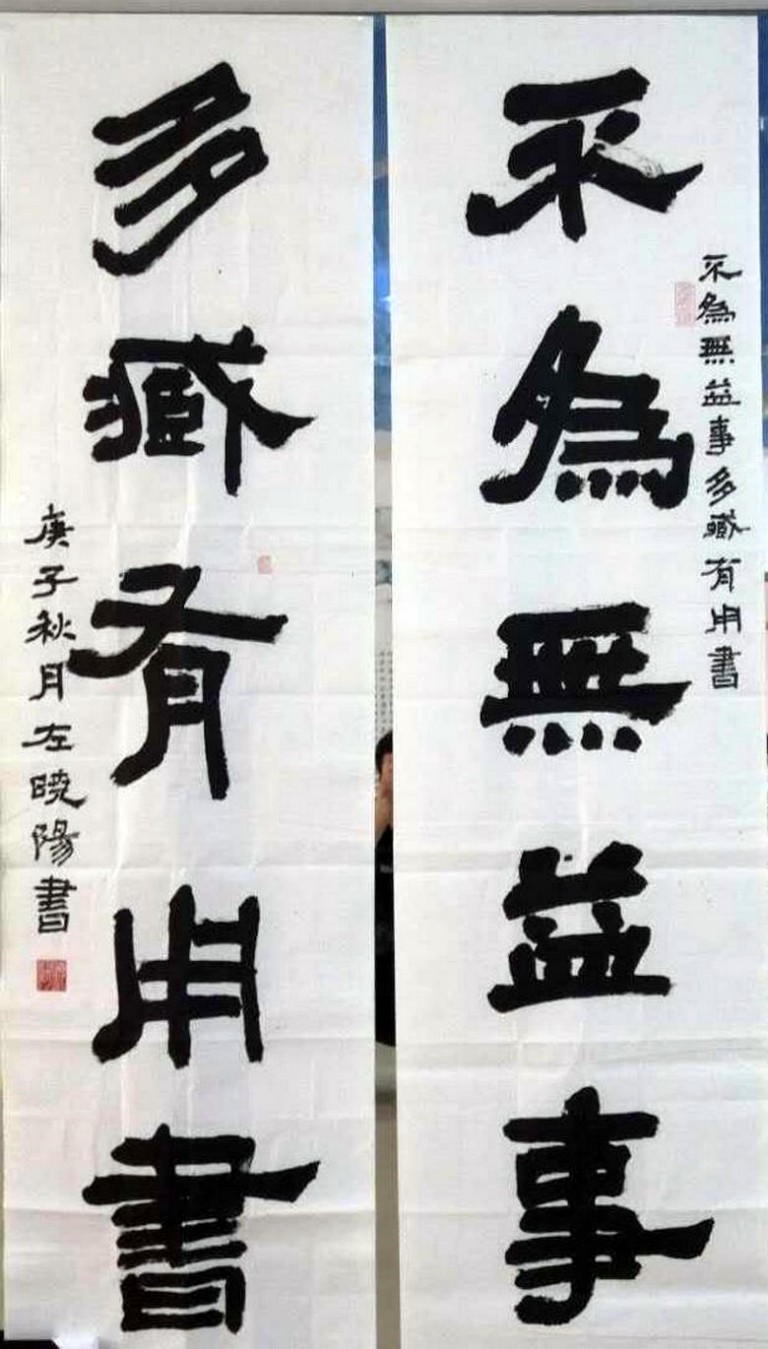 不為無益事
不為無益事多藏有用書
多藏有用書
庚子秋月左曉陽書